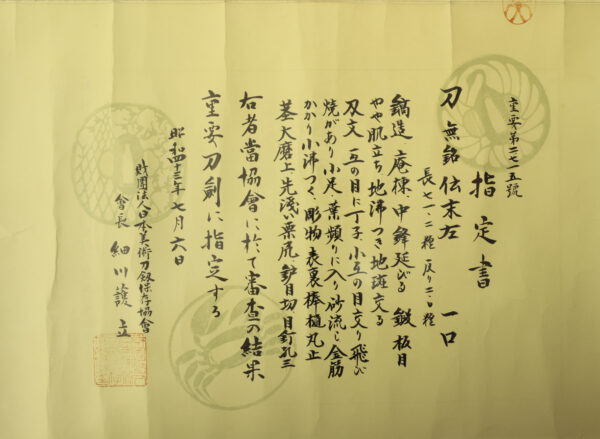 重要第二七一五號
指定書
刀 無銘 伝末左 一口
長七一、二糎 反り二、〇糎
鎬造 庵棟、中鋒延びる 鍛 板目
やや肌立ち地沸つき地斑交る
刃文 互の目に丁子、小互の目交り飛び
焼があり小足、葉頻りに入り砂流し金筋
かかり小沸つく、彫物 表裏棒樋丸止
茎 大磨上先浅い栗尻、鑢目切 目釘孔三
右者當協會に於て審査の結果
重要刀剣に指定する
昭和四十三年七月六日
財團法人日本美術刀剣保存協會
會長 細川護立